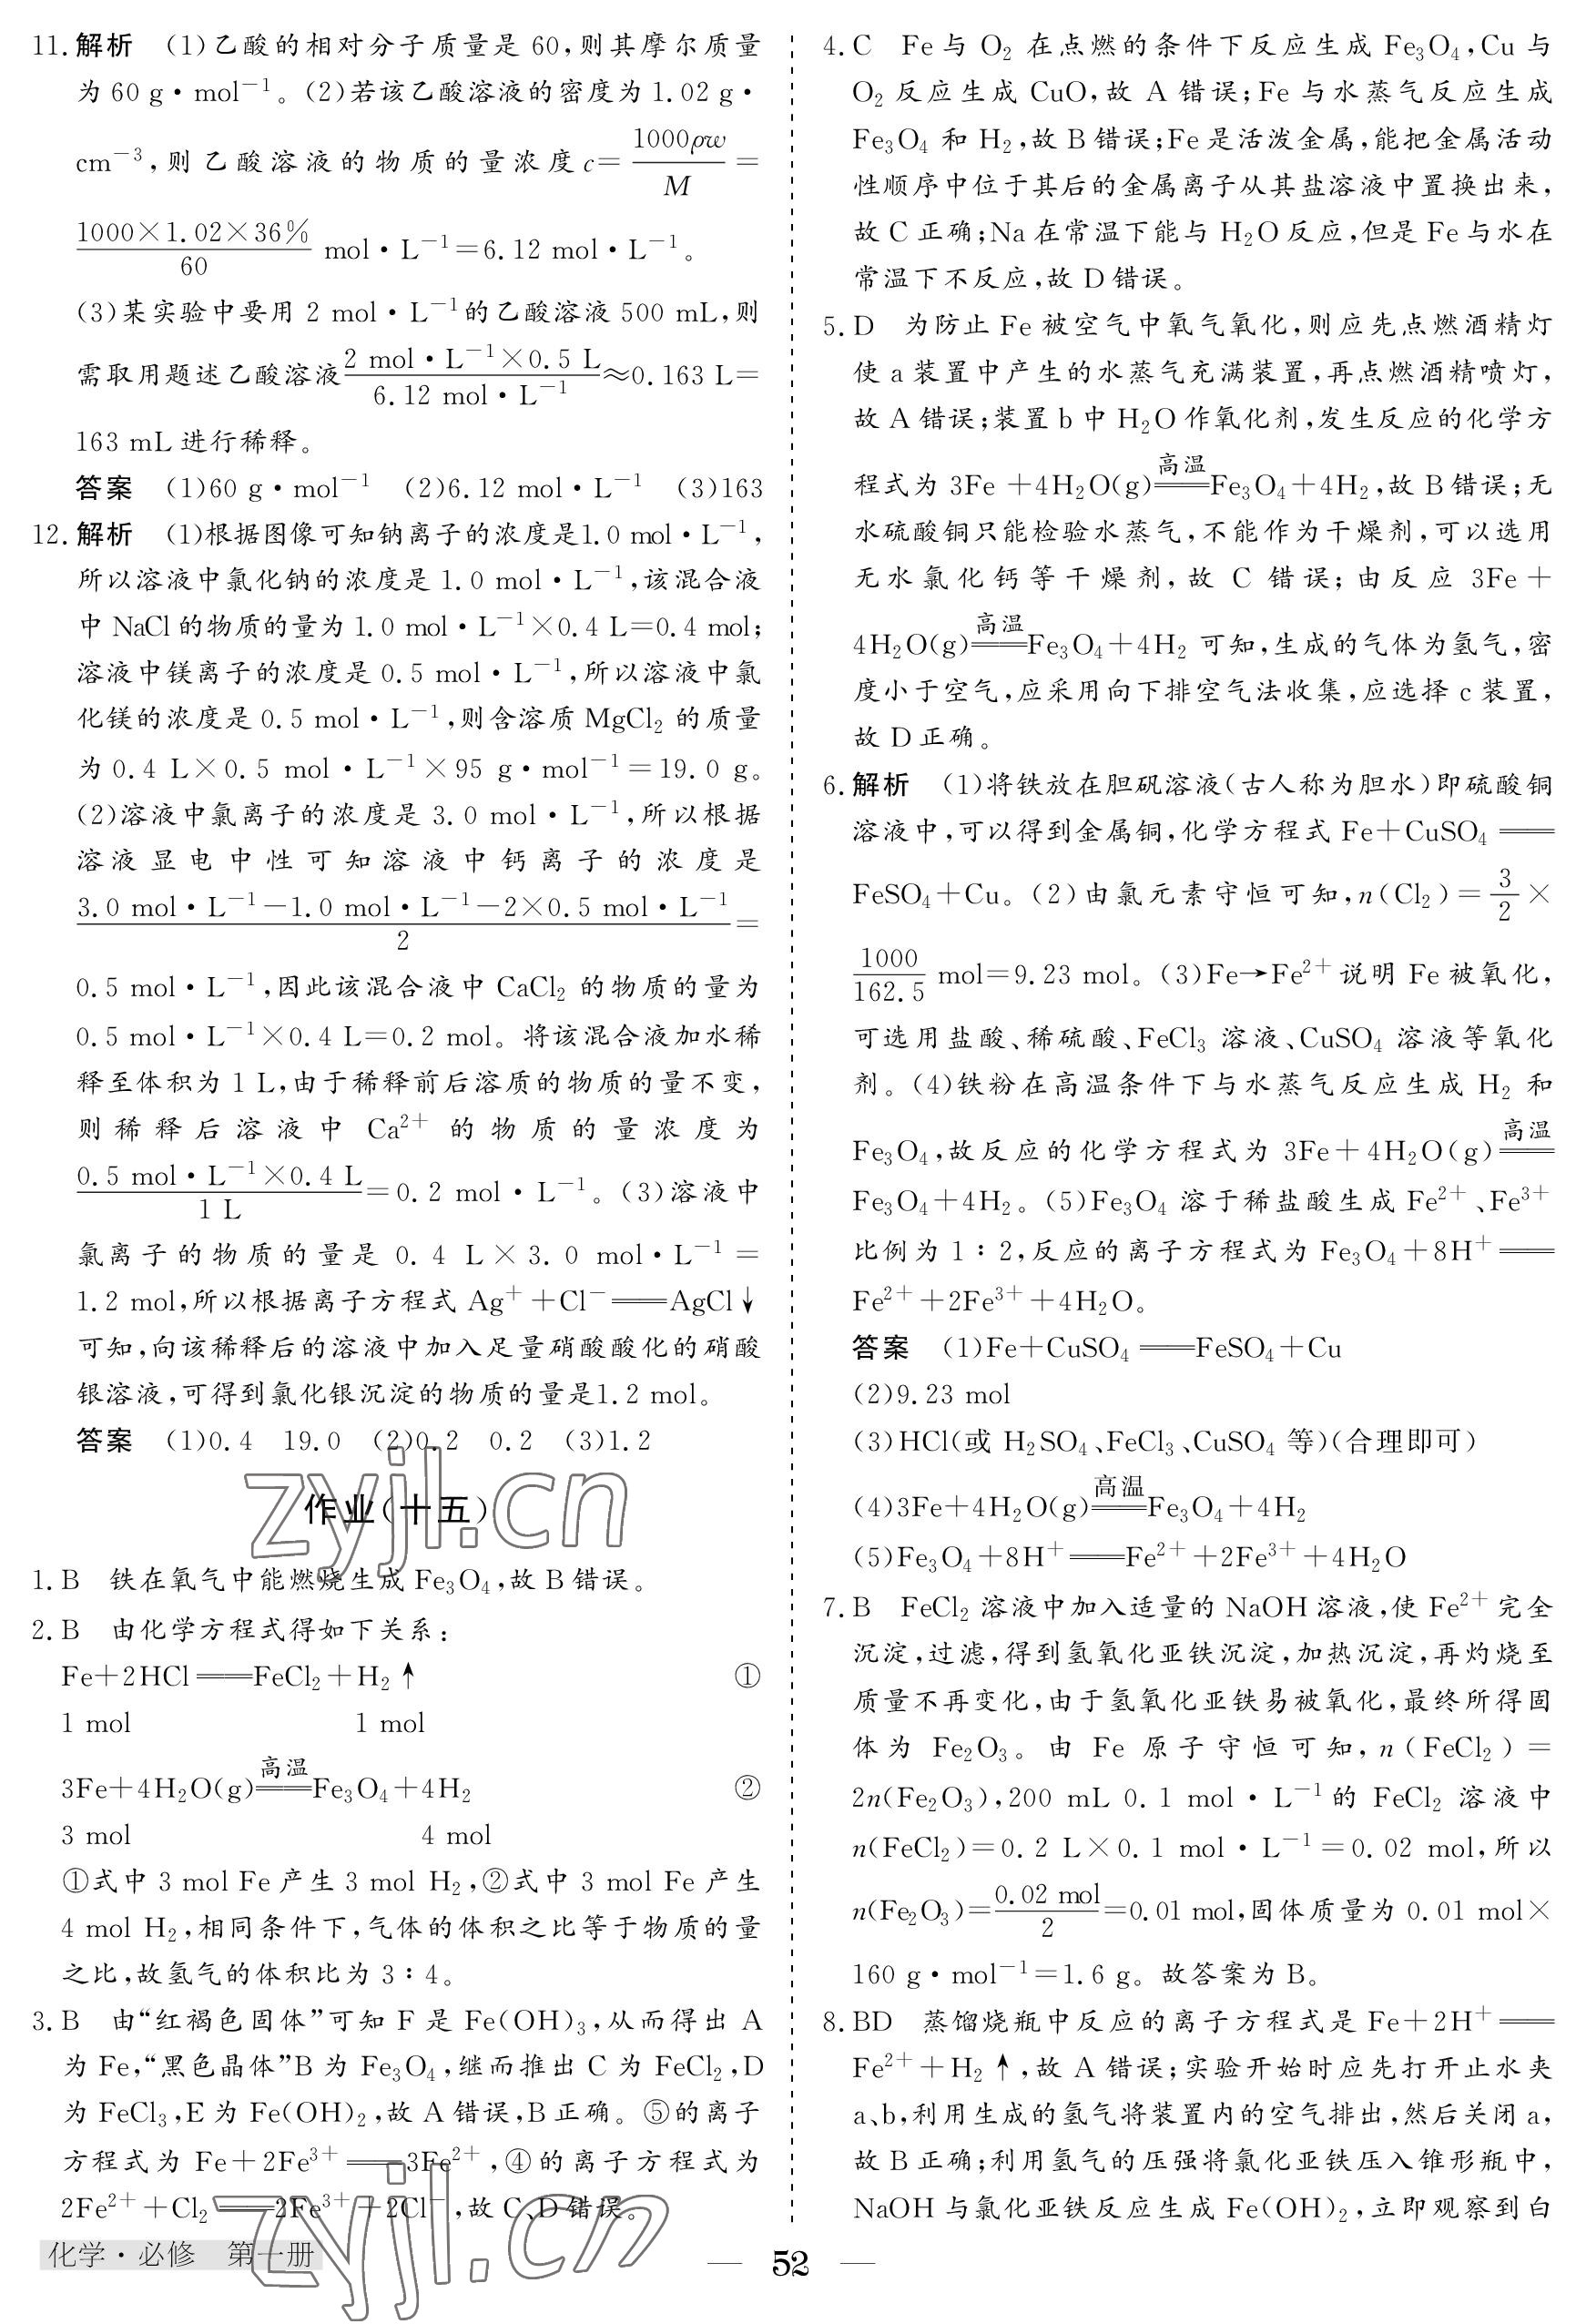 11. 解析　(1)乙酸的相对分子质量是 60,则其摩尔质量
为 60 g·mol⁻¹。(2)若该乙酸溶液的密度为 1.02 g·
cm⁻³,则乙酸溶液的物质的量浓度 c= 1000ρw/M =
1000×1.02×36%/60 mol·L⁻¹=6.12 mol·L⁻¹。
(3)某实验中要用 2 mol·L⁻¹的乙酸溶液 500 mL,则
需取用题述乙酸溶液 2 mol·L⁻¹×0.5 L/6.12 mol·L⁻¹ ≈0.163 L=
163 mL 进行稀释。
答案　(1)60 g·mol⁻¹　(2)6.12 mol·L⁻¹　(3)163
12. 解析　(1)根据图像可知钠离子的浓度是1.0 mol·L⁻¹,
所以溶液中氯化钠的浓度是 1.0 mol·L⁻¹,该混合液
中 NaCl 的物质的量为 1.0 mol·L⁻¹×0.4 L=0.4 mol;
溶液中镁离子的浓度是 0.5 mol·L⁻¹,所以溶液中氯
化镁的浓度是 0.5 mol·L⁻¹,则含溶质 MgCl₂ 的质量
为 0.4 L×0.5 mol·L⁻¹×95 g·mol⁻¹=19.0 g。
(2)溶液中氯离子的浓度是 3.0 mol·L⁻¹,所以根据
溶液显电中性可知溶液中钙离子的浓度是
3.0 mol·L⁻¹−1.0 mol·L⁻¹−2×0.5 mol·L⁻¹/2 =
0.5 mol·L⁻¹,因此该混合液中 CaCl₂ 的物质的量为
0.5 mol·L⁻¹×0.4 L=0.2 mol。将该混合液加水稀
释至体积为 1 L,由于稀释前后溶质的物质的量不变,
则稀释后溶液中 Ca²⁺ 的物质的量浓度为
0.5 mol·L⁻¹×0.4 L/1 L =0.2 mol·L⁻¹。(3)溶液中
氯离子的物质的量是 0.4 L×3.0 mol·L⁻¹=
1.2 mol,所以根据离子方程式 Ag⁺+Cl⁻══AgCl↓
可知,向该稀释后的溶液中加入足量硝酸酸化的硝酸
银溶液,可得到氯化银沉淀的物质的量是1.2 mol。
答案　(1)0.4　19.0　(2)0.2　0.2　(3)1.2
zyjl.cn
作业(十五)
1. B　铁在氧气中能燃烧生成 Fe₃O₄,故 B 错误。
2. B　由化学方程式得如下关系:
Fe+2HCl══FeCl₂+H₂↑　①
1 mol　1 mol
3Fe+4H₂O(g)═高温═Fe₃O₄+4H₂　②
3 mol　4 mol
①式中 3 mol Fe 产生 3 mol H₂,②式中 3 mol Fe 产生
4 mol H₂,相同条件下,气体的体积之比等于物质的量
之比,故氢气的体积比为 3∶4。
3. B　由“红褐色固体”可知 F 是 Fe(OH)₃,从而得出 A
为 Fe,“黑色晶体”B 为 Fe₃O₄,继而推出 C 为 FeCl₂,D
为 FeCl₃,E 为 Fe(OH)₂,故 A 错误,B 正确。⑤的离子
方程式为 Fe+2Fe³⁺══3Fe²⁺,④的离子方程式为
2Fe²⁺+Cl₂══2Fe³⁺+2Cl⁻,故 C、D 错误。
zyjl.cn
4. C　Fe 与 O₂ 在点燃的条件下反应生成 Fe₃O₄,Cu 与
O₂ 反应生成 CuO,故 A 错误;Fe 与水蒸气反应生成
Fe₃O₄ 和 H₂,故 B 错误;Fe 是活泼金属,能把金属活动
性顺序中位于其后的金属离子从其盐溶液中置换出来,
故 C 正确;Na 在常温下能与 H₂O 反应,但是 Fe 与水在
常温下不反应,故 D 错误。
5. D　为防止 Fe 被空气中氧气氧化,则应先点燃酒精灯
使 a 装置中产生的水蒸气充满装置,再点燃酒精喷灯,
故 A 错误;装置 b 中 H₂O 作氧化剂,发生反应的化学方
程式为 3Fe+4H₂O(g)═高温═Fe₃O₄+4H₂,故 B 错误;无
水硫酸铜只能检验水蒸气,不能作为干燥剂,可以选用
无水氯化钙等干燥剂,故 C 错误;由反应 3Fe+
4H₂O(g)═高温═Fe₃O₄+4H₂ 可知,生成的气体为氢气,密
度小于空气,应采用向下排空气法收集,应选择 c 装置,
故 D 正确。
6. 解析　(1)将铁放在胆矾溶液(古人称为胆水)即硫酸铜
溶液中,可以得到金属铜,化学方程式 Fe+CuSO₄══
FeSO₄+Cu。(2)由氯元素守恒可知,n(Cl₂)= 3/2 ×
1000/162.5 mol=9.23 mol。(3)Fe→Fe²⁺ 说明 Fe 被氧化,
可选用盐酸、稀硫酸、FeCl₃ 溶液、CuSO₄ 溶液等氧化
剂。(4)铁粉在高温条件下与水蒸气反应生成 H₂ 和
Fe₃O₄,故反应的化学方程式为 3Fe+4H₂O(g)═高温═
Fe₃O₄+4H₂。(5)Fe₃O₄ 溶于稀盐酸生成 Fe²⁺、Fe³⁺
比例为 1∶2,反应的离子方程式为 Fe₃O₄+8H⁺══
Fe²⁺+2Fe³⁺+4H₂O。
答案　(1)Fe+CuSO₄══FeSO₄+Cu
(2)9.23 mol
(3)HCl(或 H₂SO₄、FeCl₃、CuSO₄ 等)(合理即可)
(4)3Fe+4H₂O(g)═高温═Fe₃O₄+4H₂
(5)Fe₃O₄+8H⁺══Fe²⁺+2Fe³⁺+4H₂O
7. B　FeCl₂ 溶液中加入适量的 NaOH 溶液,使 Fe²⁺ 完全
沉淀,过滤,得到氢氧化亚铁沉淀,加热沉淀,再灼烧至
质量不再变化,由于氢氧化亚铁易被氧化,最终所得固
体为 Fe₂O₃。由 Fe 原子守恒可知,n(FeCl₂)=
2n(Fe₂O₃),200 mL 0.1 mol·L⁻¹ 的 FeCl₂ 溶液中
n(FeCl₂)=0.2 L×0.1 mol·L⁻¹=0.02 mol,所以
n(Fe₂O₃)= 0.02 mol/2 =0.01 mol,固体质量为 0.01 mol×
160 g·mol⁻¹=1.6 g。故答案为 B。
8. BD　蒸馏烧瓶中反应的离子方程式是 Fe+2H⁺══
Fe²⁺+H₂↑,故 A 错误;实验开始时应先打开止水夹
a、b,利用生成的氢气将装置内的空气排出,然后关闭 a,
故 B 正确;利用氢气的压强将氯化亚铁压入锥形瓶中,
NaOH 与氯化亚铁反应生成 Fe(OH)₂,立即观察到白
化学·必修　第一册
— 52 —